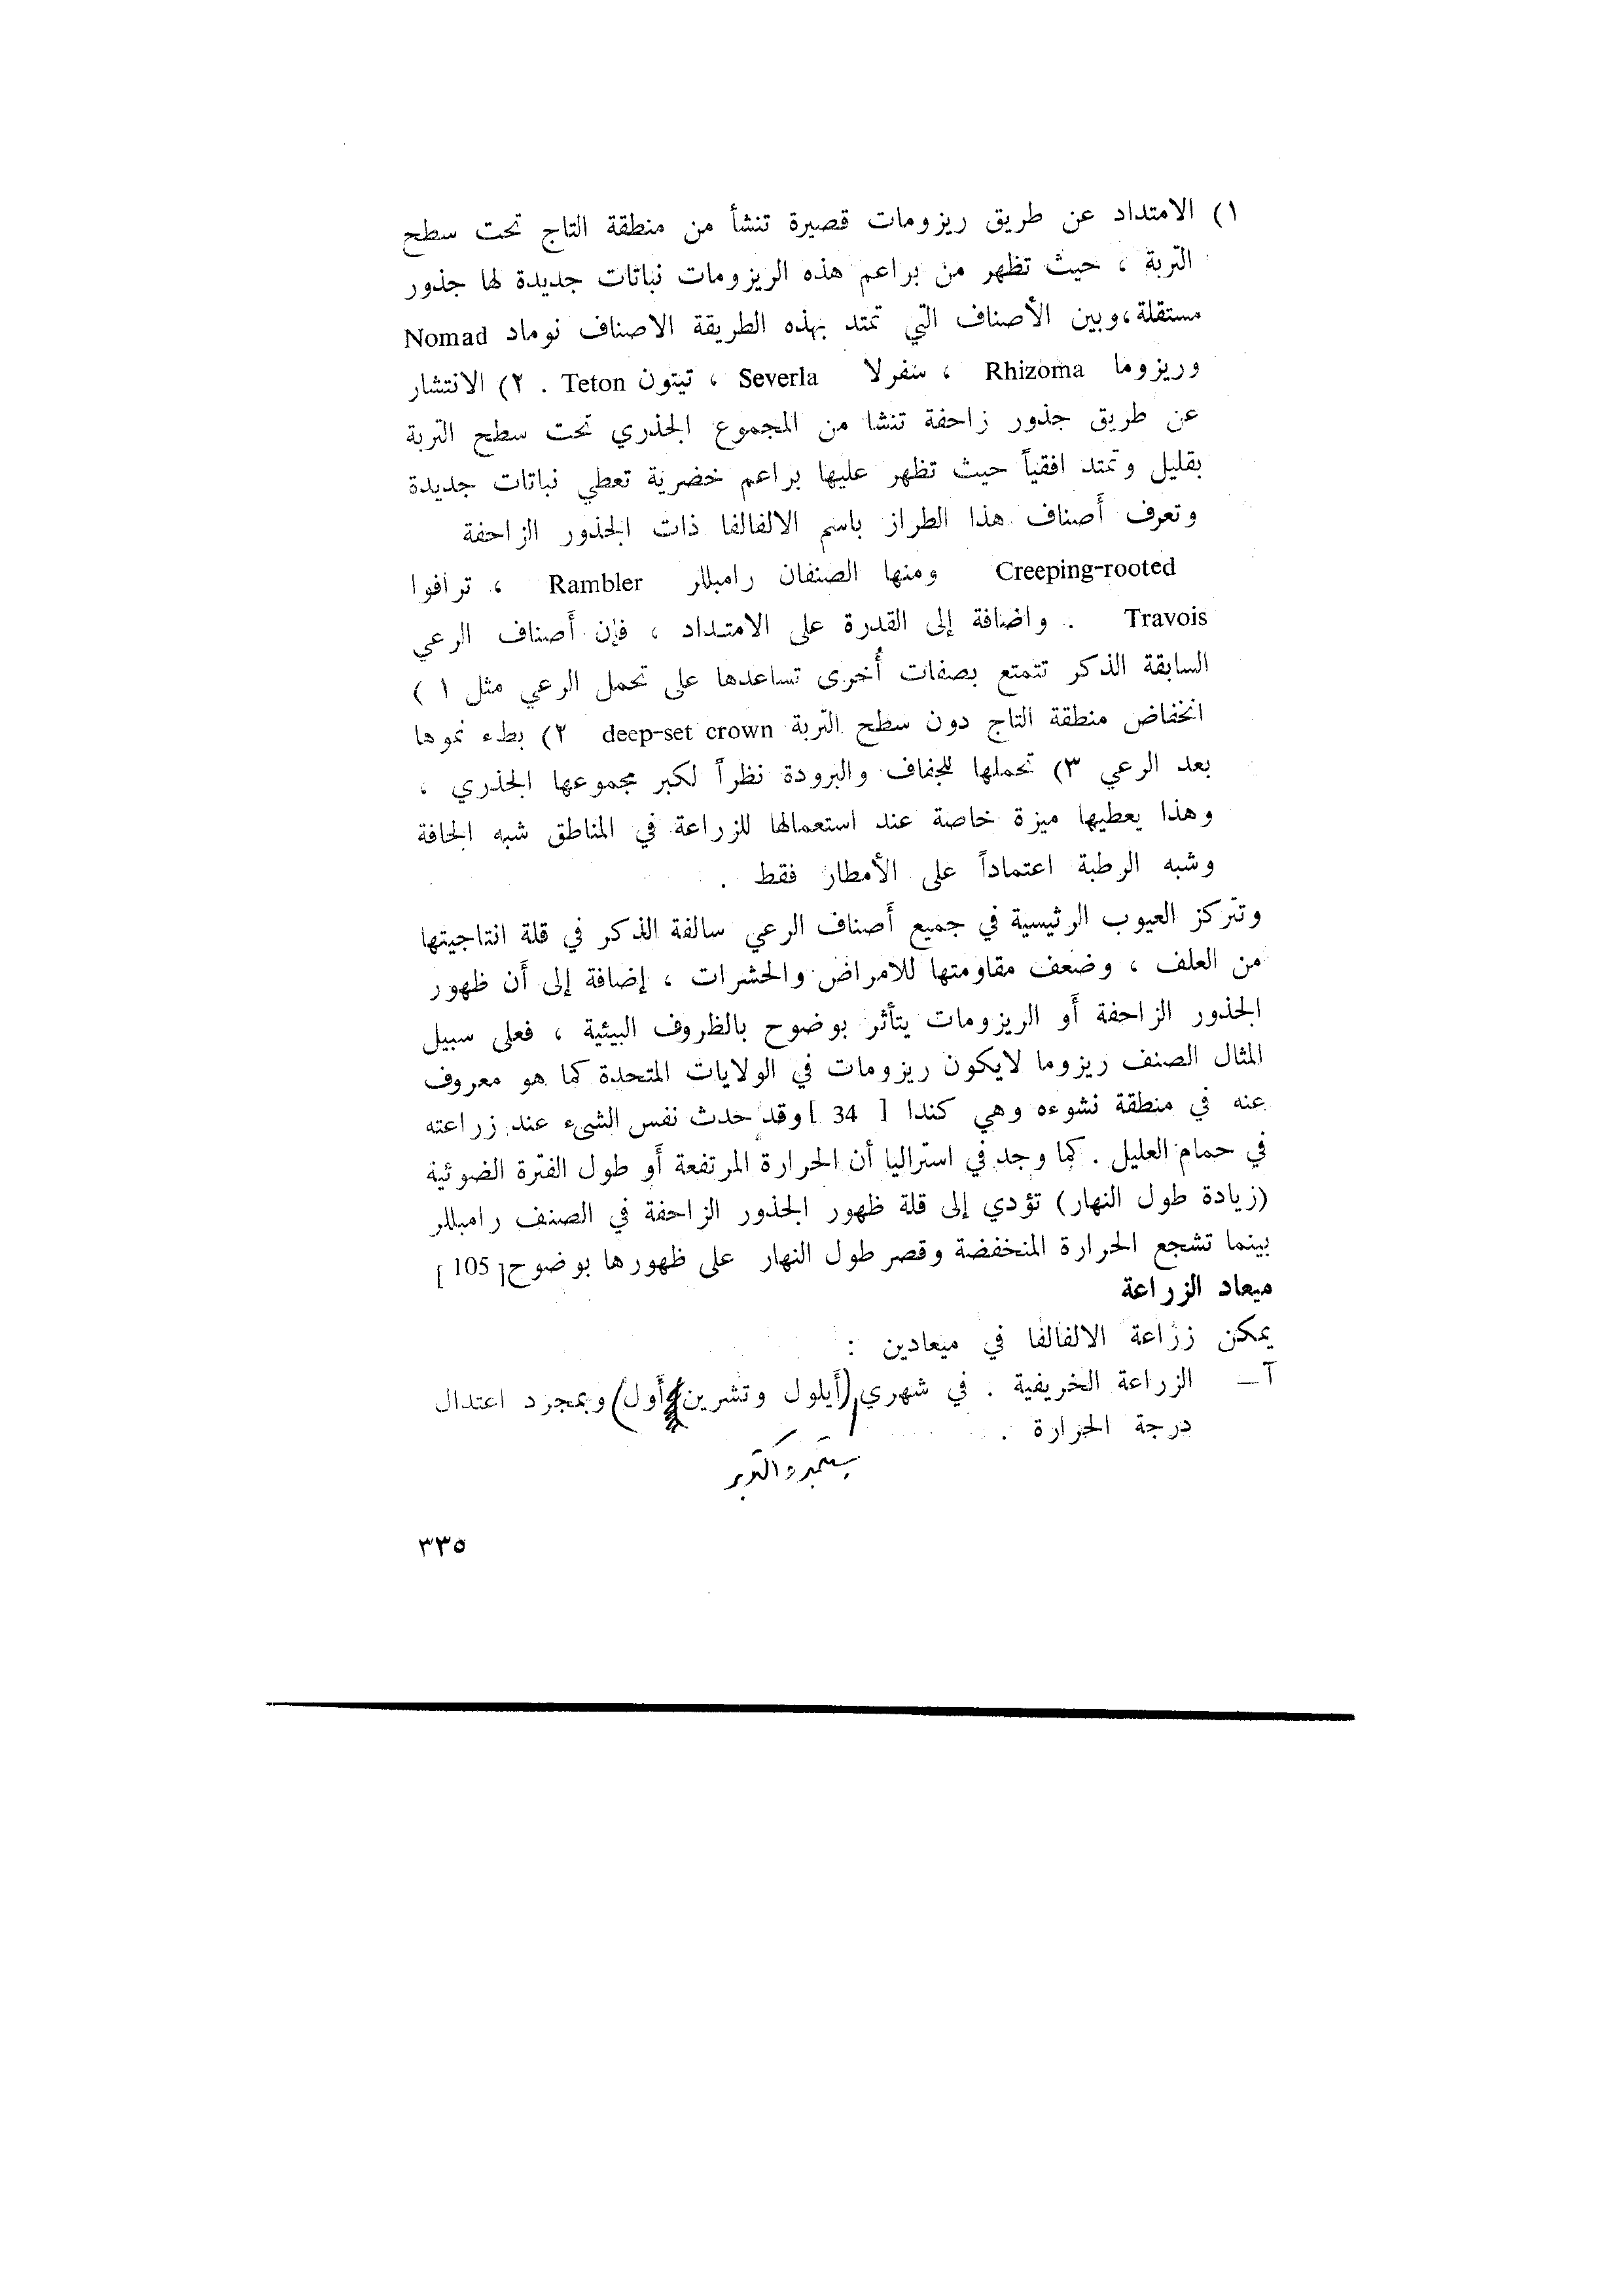 ١) الامتداد عن طريق ريزومات قصيرة تنشأ من منطقة التاج تحت سطح
التربة ، حيث تظهر من براعم هذه الريزومات نباتات جديدة لها جذور
مستقلة ، وبين الأصناف التي تمتد بهذه الطريقة الاصناف نوماد Nomad
وريزوما Rhizoma ، سفرلا Severla ، تيتون Teton . ٢) الانتشار
عن طريق جذور زاحفة تنشا من المجموع الجذري تحت سطح التربة
بقليل وتمتد افقياً حيث تظهر عليها براعم خضرية تعطي نباتات جديدة
وتعرف أصناف هذا الطراز باسم الالفالفا ذات الجذور الزاحفة
Creeping-rooted ومنها الصنفان رامبللر Rambler ، ترافوا
Travois . واضافة إلى القدرة على الامتداد ، فإن أصناف الرعي
السابقة الذكر تتمتع بصفات أُخرى تساعدها على تحمل الرعي مثل ١ )
انخفاض منطقة التاج دون سطح التربة deep-set crown ٢) بطء نموها
بعد الرعي ٣) تحملها للجفاف والبرودة نظراً لكبر مجموعها الجذري ،
وهذا يعطيها ميزة خاصة عند استعمالها للزراعة في المناطق شبه الجافة
وشبه الرطبة اعتماداً على الأمطار فقط .
وتتركز العيوب الرئيسية في جميع أصناف الرعي سالفة الذكر في قلة انتاجيتها
من العلف ، وضعف مقاومتها للامراض والحشرات ، إضافة إلى أن ظهور
الجذور الزاحفة أو الريزومات يتأثر بوضوح بالظروف البيئية ، فعلى سبيل
المثال الصنف ريزوما لايكون ريزومات في الولايات المتحدة كما هو معروف
عنه في منطقة نشوءه وهي كندا [ 34 ] وقد حدث نفس الشيء عند زراعته
في حمام العليل . كما وجد في استراليا أن الحرارة المرتفعة أو طول الفترة الضوئية
(زيادة طول النهار) تؤدي إلى قلة ظهور الجذور الزاحفة في الصنف رامبللر
بينما تشجع الحرارة المنخفضة وقصر طول النهار على ظهورها بوضوح [ 105 ]
ميعاد الزراعة
يمكن زراعة الالفالفا في ميعادين :
آ – الزراعة الخريفية . في شهري (أيلول وتشرين أول) وبمجرد اعتدال
درجة الحرارة .
سبتمبر واكتوبر
٣٣٥